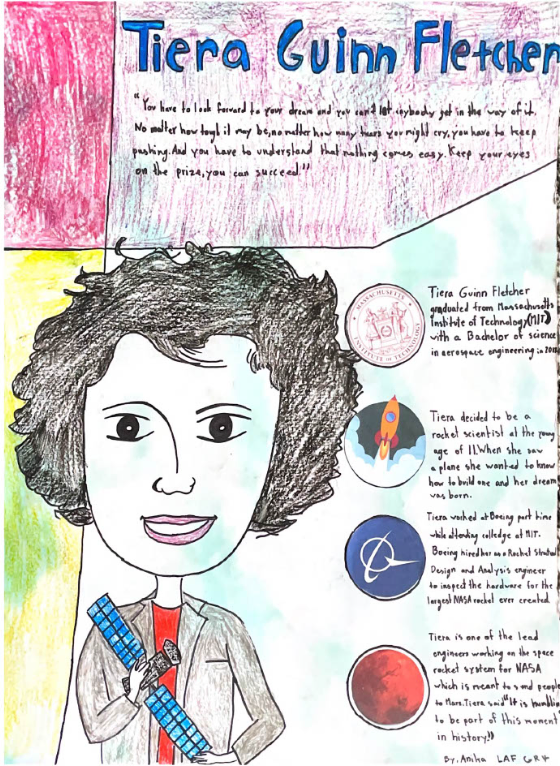 Tiera Guinn Fletcher
"You have to look forward to your dream and you can't let anybody get in the way of it.
No matter how tough it may be, no matter how many tears you might cry, you have to keep
pushing. And you have to understand that nothing comes easy. Keep your eyes
on the prize, you can succeed."
MASSACHUSETTS
INSTITUTE of TECHNOLOGY
Tiera Guinn Fletcher
graduated from Massachusetts
Institute of Technology,(MIT)
with a Bachelor of science
in aerospace engineering in
Tiera decided to be a
rocket scientist at the young
age of 11. When she saw
a plane she wanted to know
how to build one and her dream
was born.
Tiera worked at Boeing part time
while attending colledge at MIT.
Boeing hired her as a Rocket
Design and Analysis engineer
to inspect the hardware for the
largest NASA rocket ever created.
Tiera is one of the lead
engineers working on the space
rocket system for NASA
which is meant to send people
to Mars. Tiera said "It is
to be part of this moment
in history!"
By. Anika LAF GR4